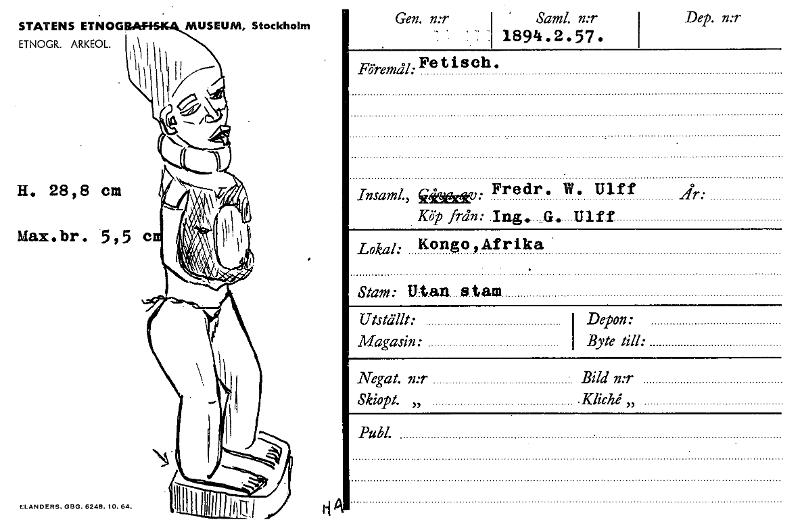 STATENS ETNOGRAFISKA MUSEUM, Stockholm
ETNOGR. ARKEOL.
H. 28,8 cm
Max.br. 5,5 cm
ELANDERS, GBG. 6248. 10. 64.
HA
Gen. n:r Saml. n:r Dep. n:r
1894.2.57.
Föremål: Fetisch.
Insaml., Gåva av: Fredr. W. Ulff År:
Köp från: Ing. G. Ulff
Lokal: Kongo,Afrika
Stam: Utan stam
Utställt: Depon:
Magasin: Byte till:
Negat. n:r Bild n:r
Skiopt. „ Kliché „
Publ.